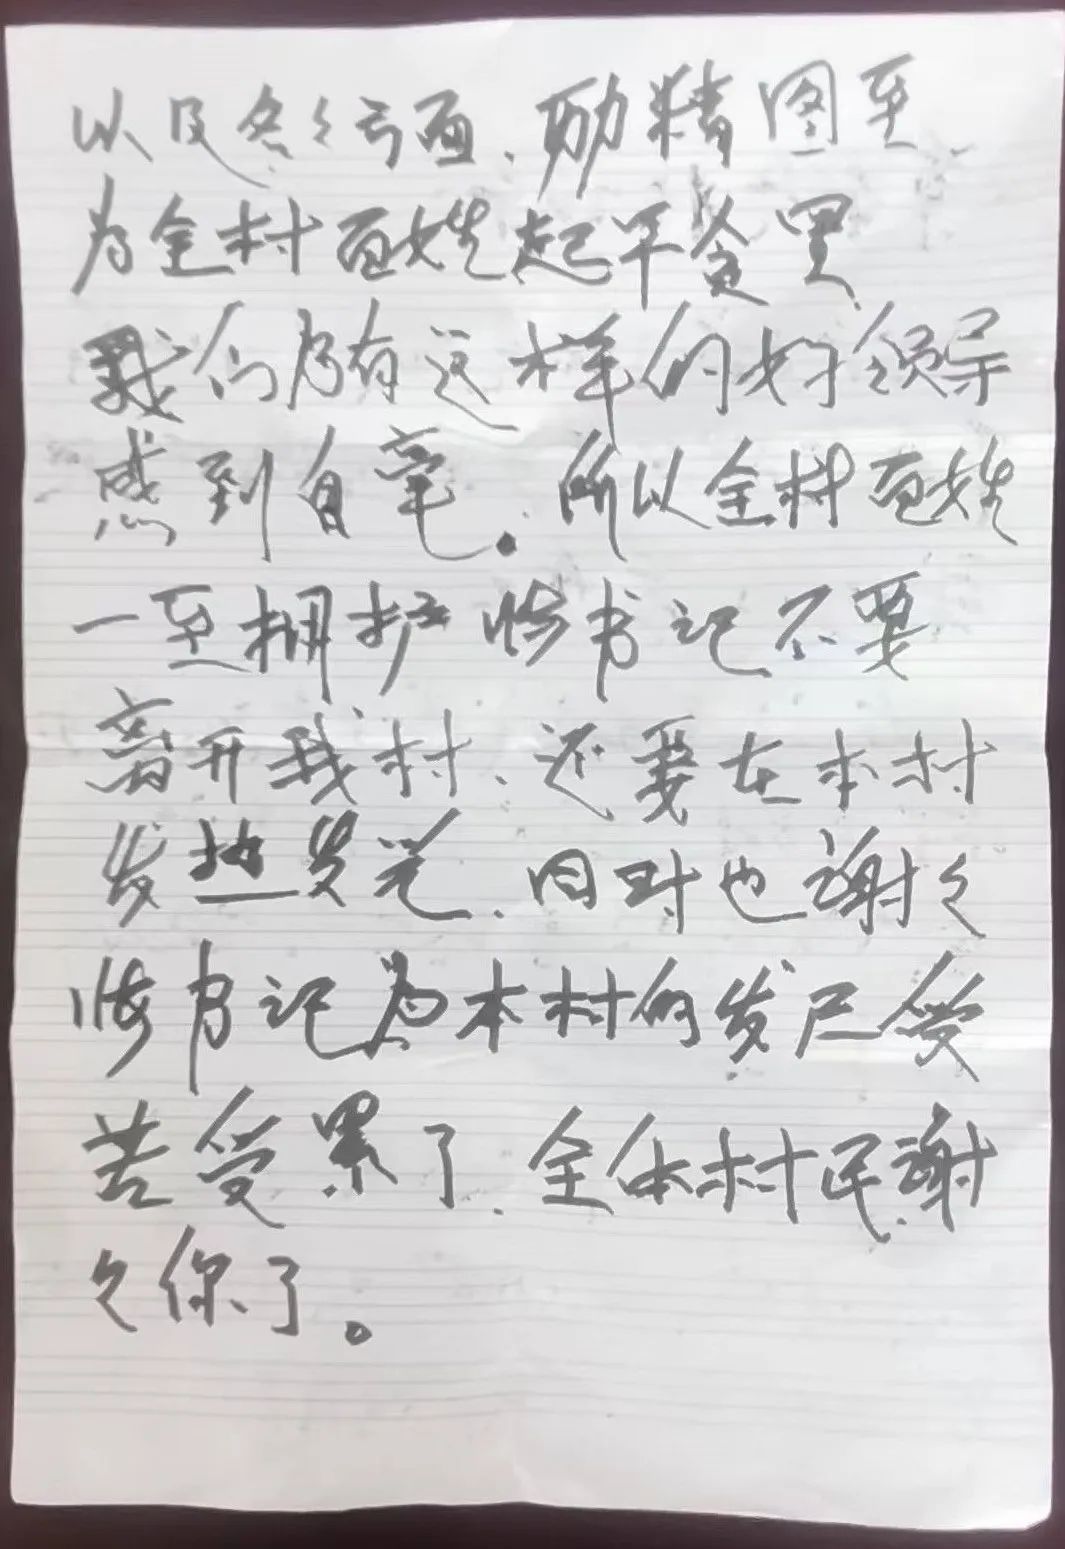 以及各々方面、励精图至
为全村百姓起早贪黑
我们为有这样的好领导
感到自毫。所以全村百姓
一至拥护 书记不要
离开我村、还要在本村
发热发光、同时也谢々
书记为本村的发尸受
苦受累了、全体村民谢
々你了。